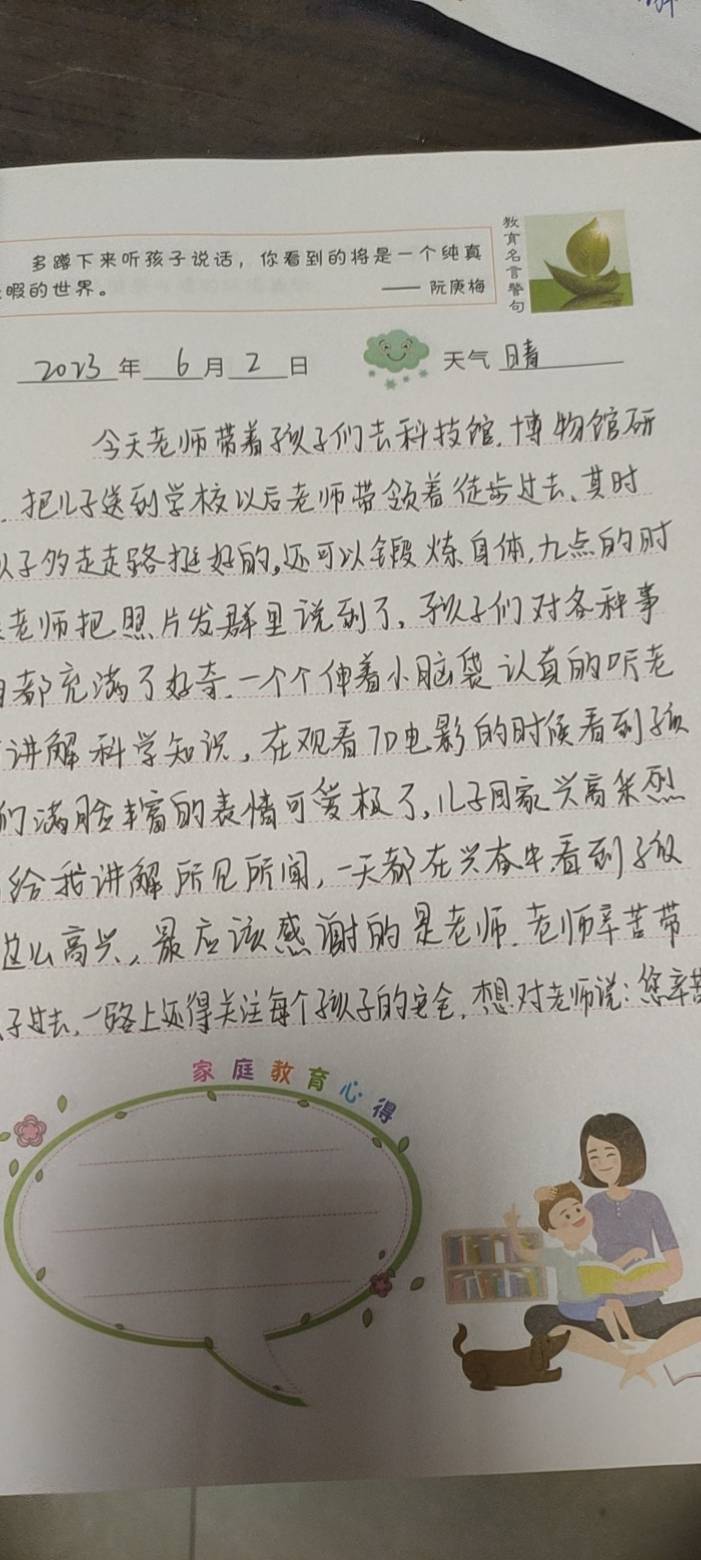 多蹲下来听孩子说话，你看到的将是一个纯真
暇的世界。 —— 阮庚梅
教育名言警句
2023年6月2日 天气 晴
今天老师带着孩子们去科技馆.博物馆研
.把儿子送到学校以后老师带领着徒步过去、其时
子多走走路挺好的,还可以锻炼自体,九点的时
老师把照片发群里说到了,孩子们对各种事
都充满了好奇.一个个伸着小脑袋认真的听老
讲解科学知识,在观看7D电影的时候看到孩
们满脸丰富的表情可爱极了,儿子回家兴高采烈
给我讲解所见所闻,一天都在兴奋中.看到孩
这么高兴,最应该感谢的是老师.老师辛苦带
子过去,一路上还得关注每个孩子的安全,想对老师说:您辛苦
家庭教育心得